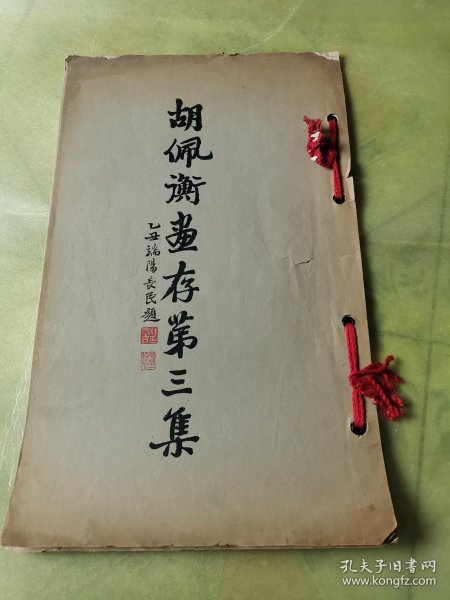 胡佩衡画存第三集
乙丑端陽長民題
孔夫子旧书网
www.kongfz.com